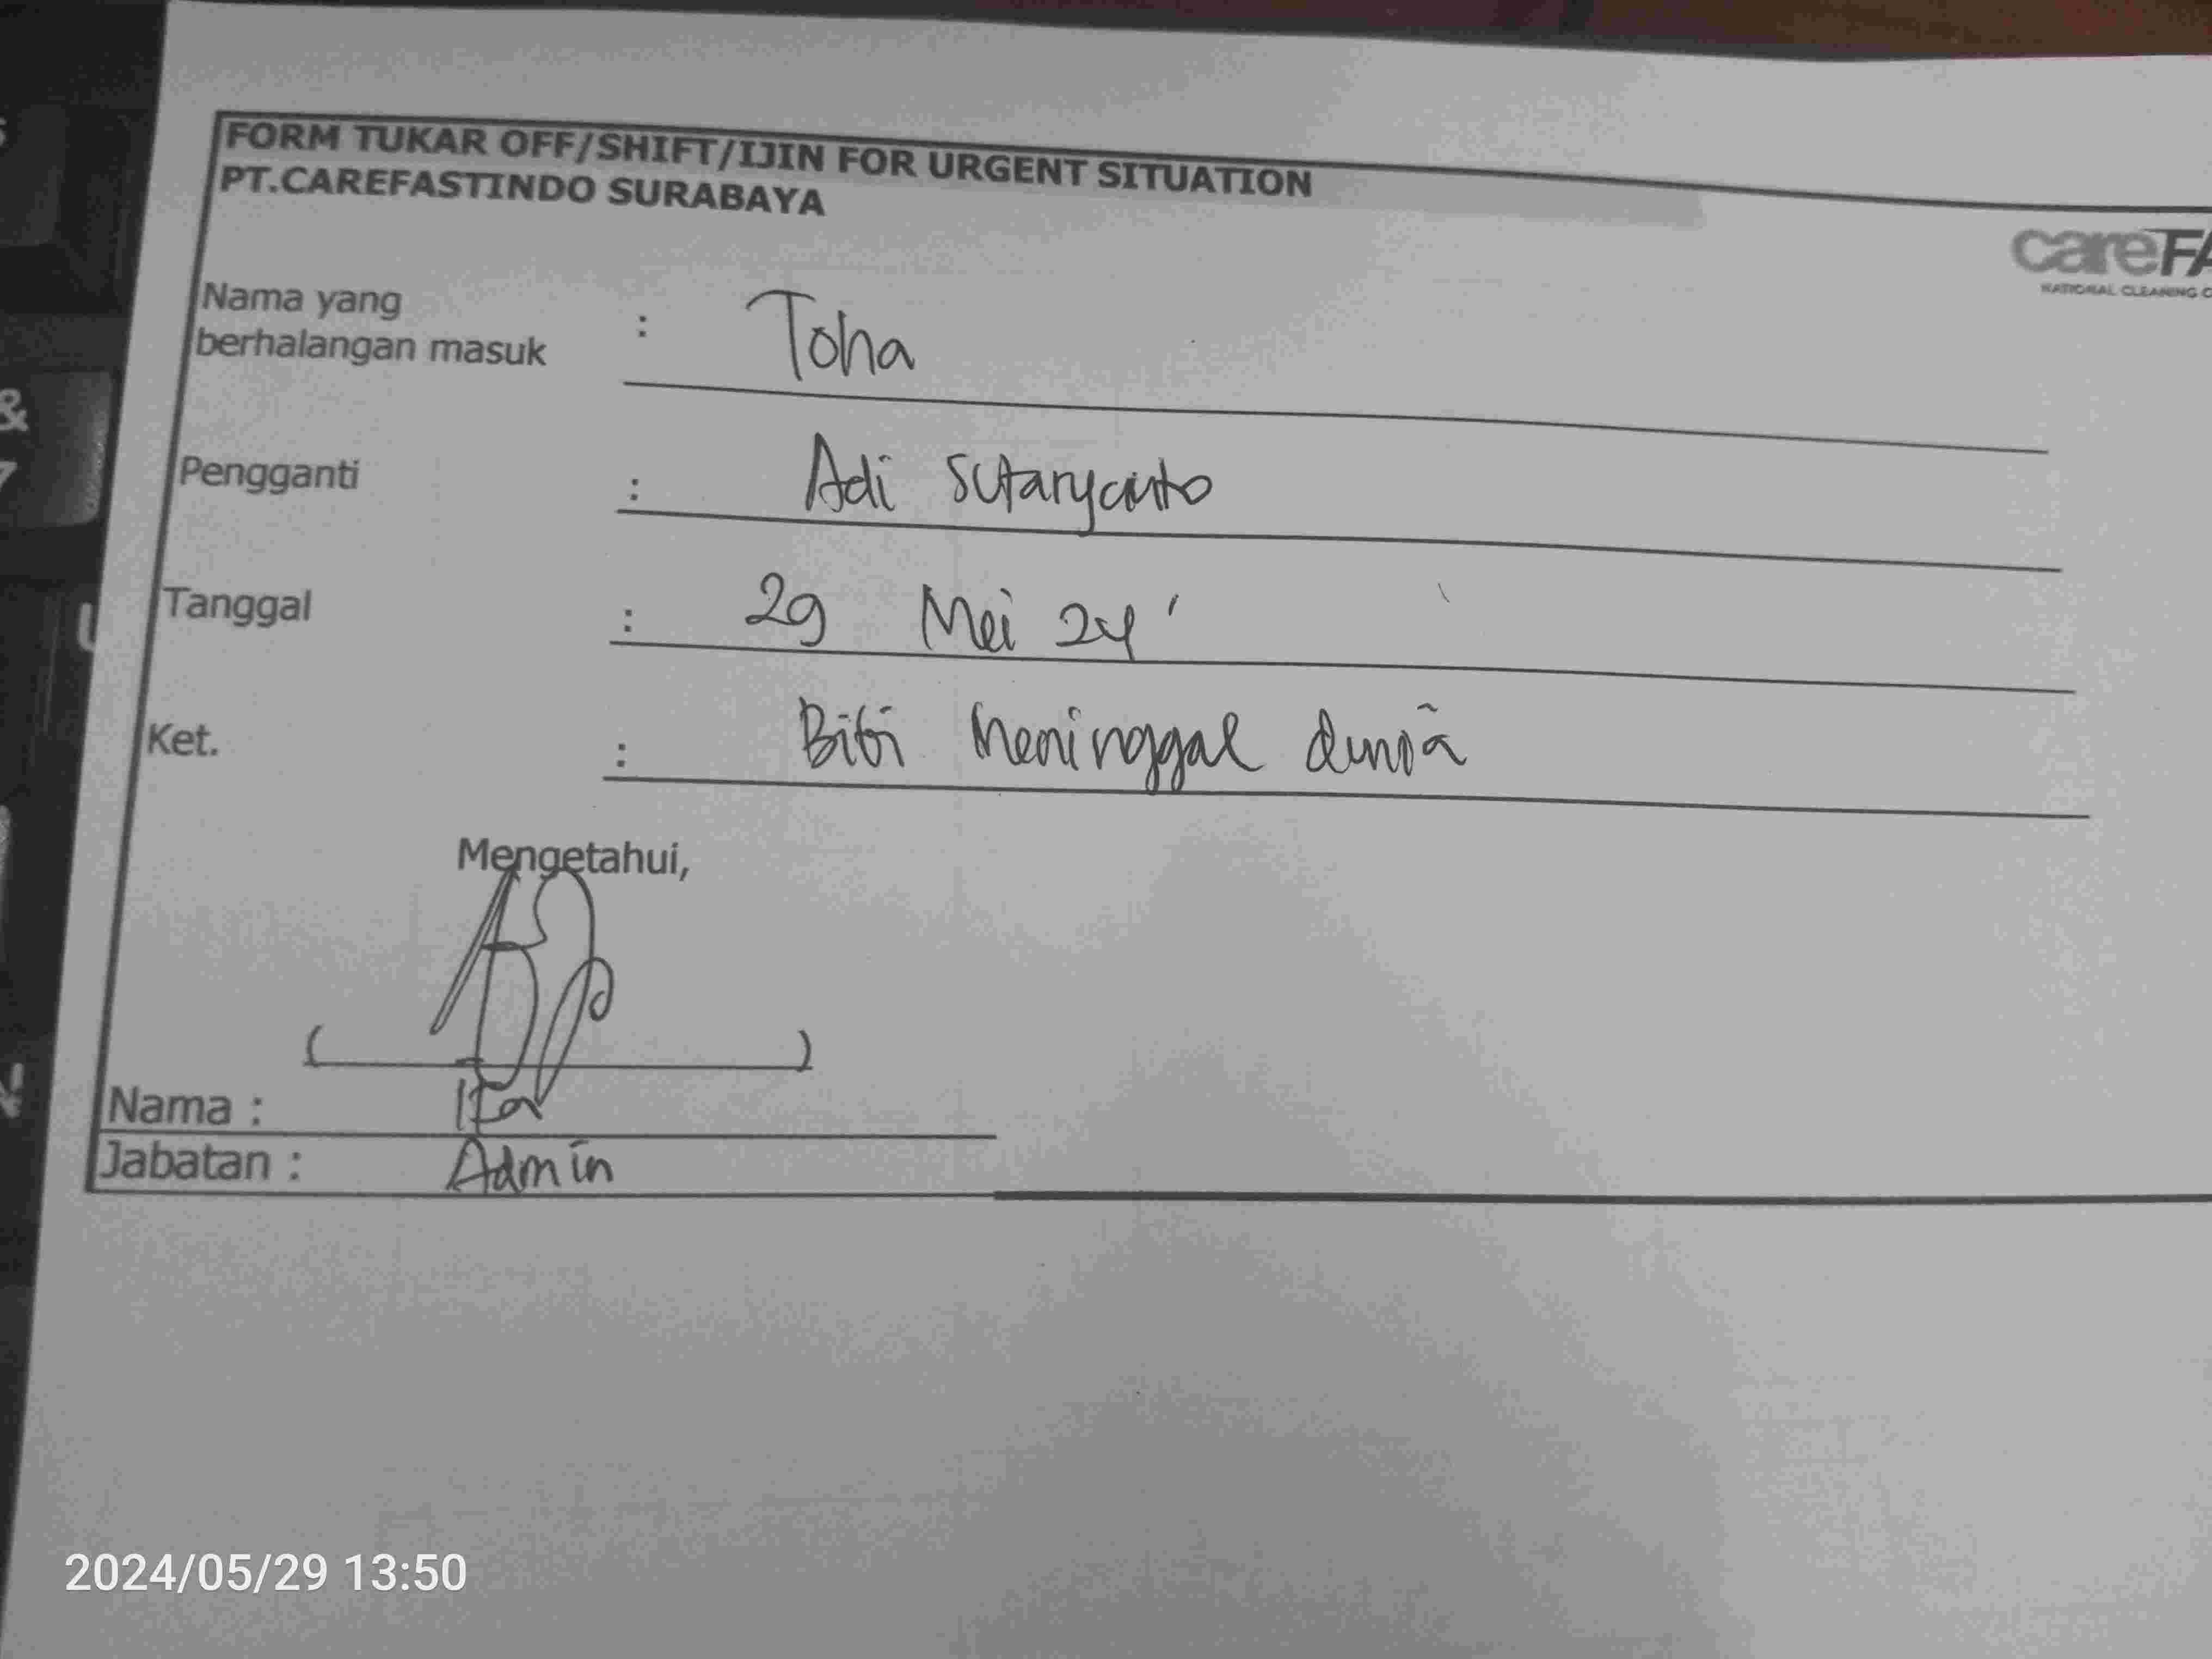 FORM TUKAR OFF/SHIFT/IJIN FOR URGENT SITUATION
PT.CAREFASTINDO SURABAYA
careFA
NATIONAL CLEANING C
Nama yang
berhalangan masuk : Toha
Pengganti : Adi Sutaryanto
Tanggal : 29 Mei 24'
Ket. : Bibi Meninggal dunia
Mengetahui,
( )
Nama :
Jabatan : Admin
2024/05/29 13:50